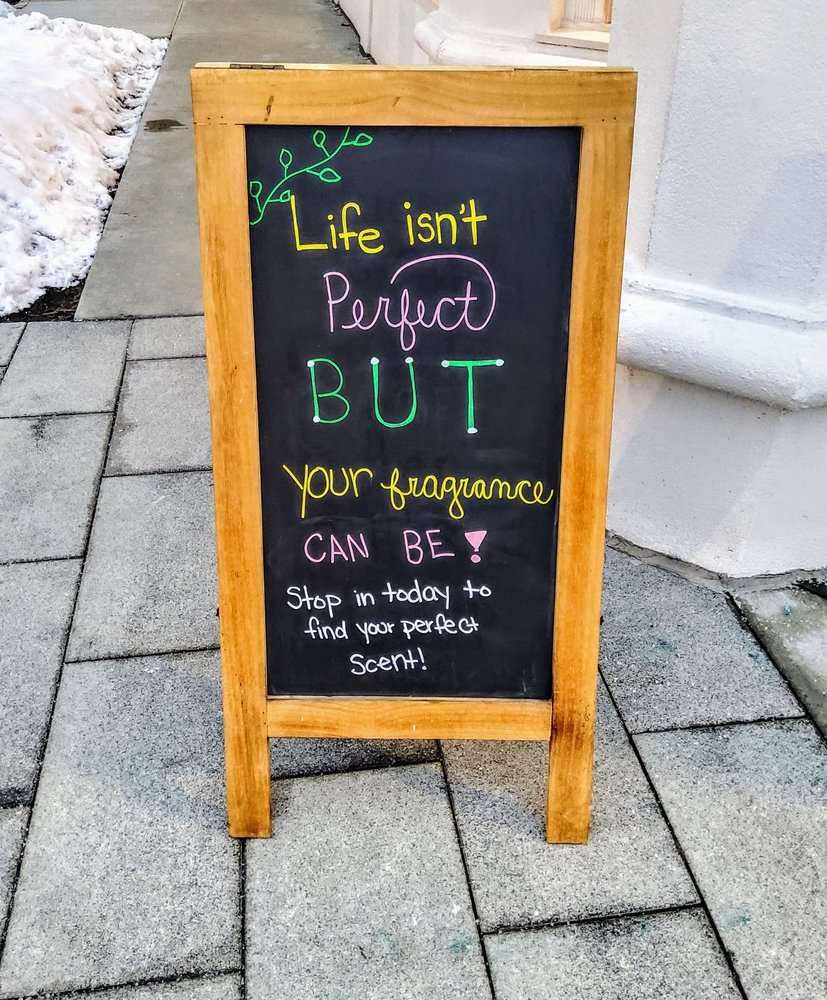 Life isn't
Perfect
BUT
your fragrance
CAN BE!
Stop in today to
find your perfect
Scent!